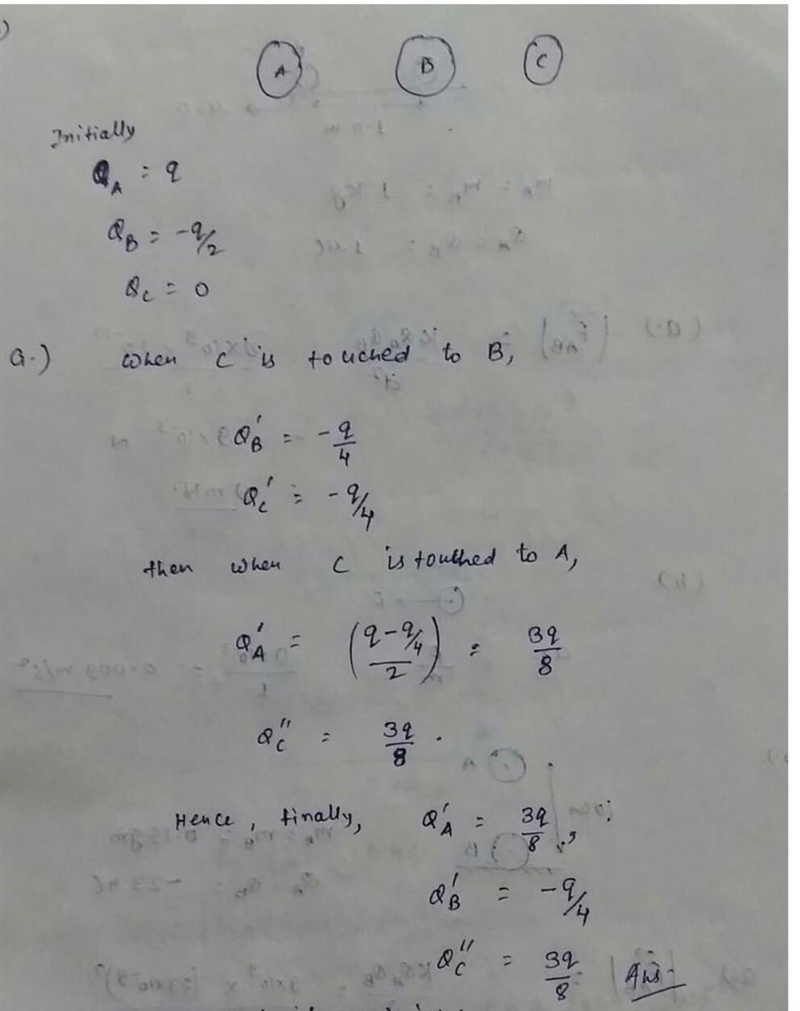 A B C
Initially
Q_A = q
Q_B = -q/2
Q_C = 0
a.) when C is touched to B,
Q_B' = -q/4
Q_C' = -q/4
then when C is touched to A,
Q_A' = ((q - q/4)/2) = 3q/8
Q_C'' = 3q/8 .
Hence, finally, Q_A' = 3q/8 ,
Q_B' = -q/4
Q_C'' = 3q/8 Ans.